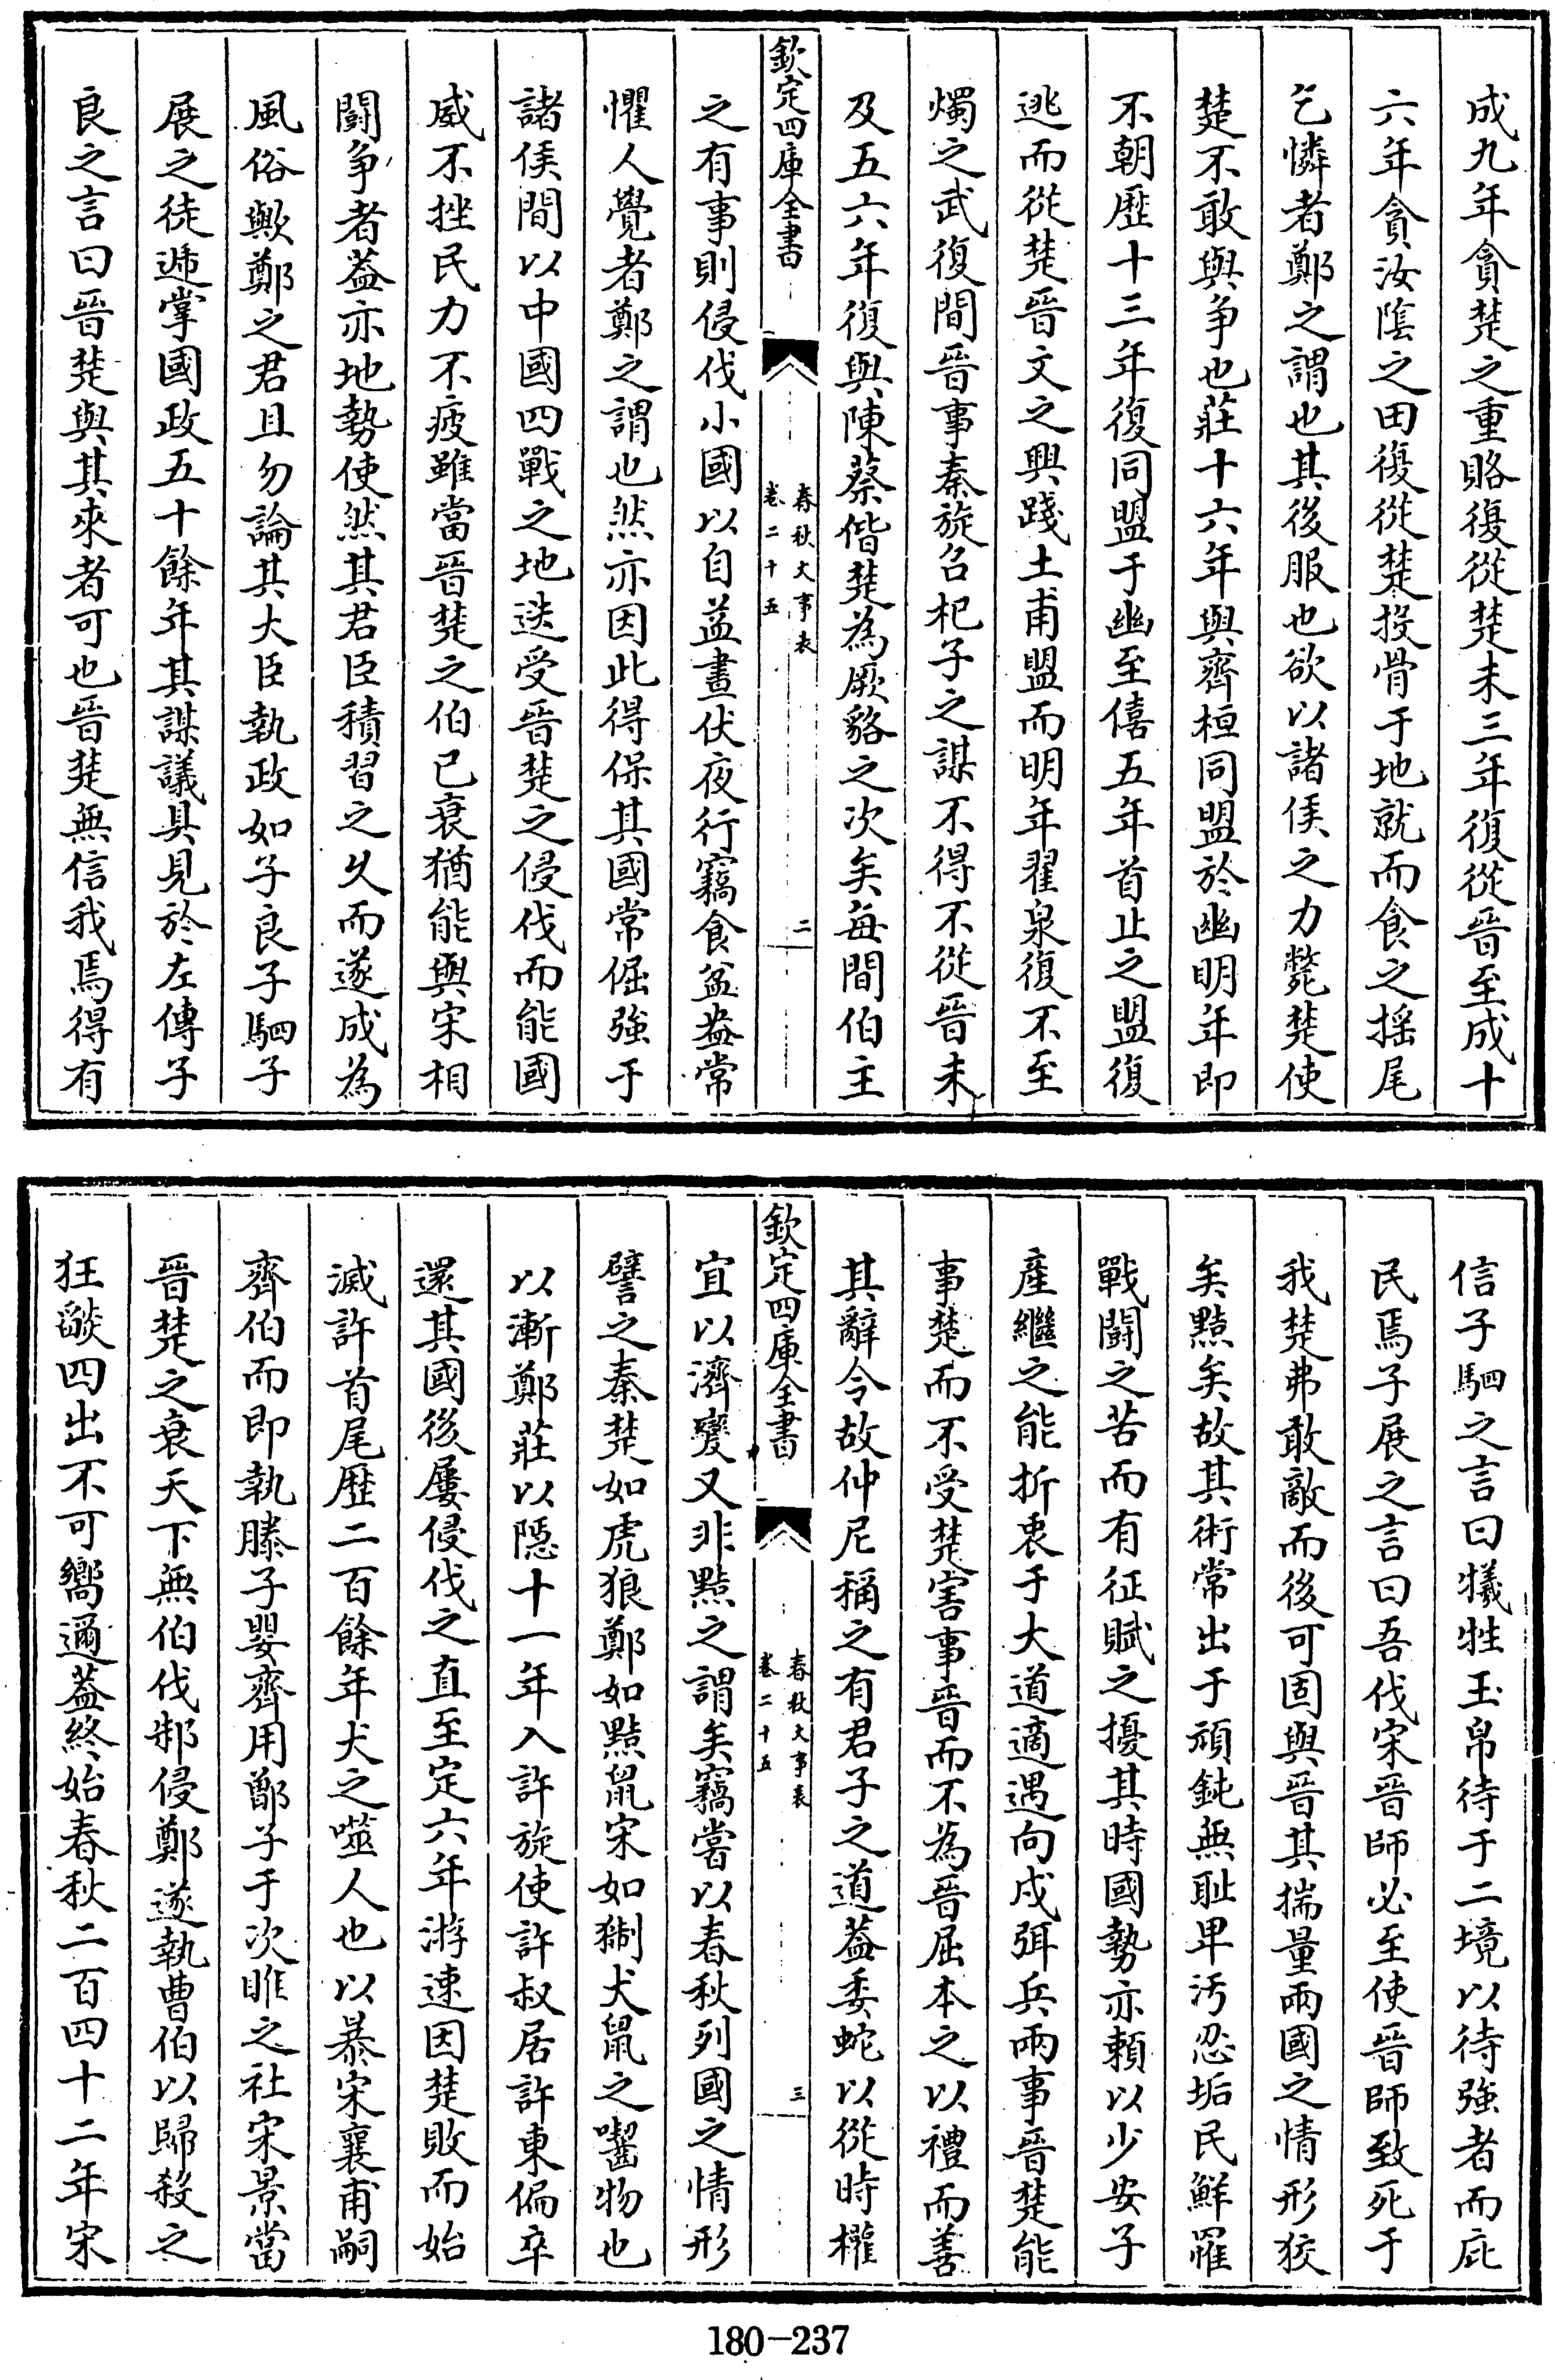 成九年貪楚之重賂復從楚未三年復從晉至成十
六年貪汝隂之田復從楚投骨于地就而食之揺尾
乞憐者鄭之謂也其後服也欲以諸侯之力斃楚使
楚不敢與争也莊十六年與齊桓同盟於幽明年即
不朝歴十三年復同盟于幽至僖五年首止之盟復
逃而從楚晉文之興踐土甫盟而明年翟泉復不至
燭之武復間晉事秦旋召杞子之謀不得不從晉未
及五六年復與陳蔡偕楚為厥貉之次矣每間伯主
欽定四庫全書
春秋大事表
卷二十五
二
之有事則侵伐小國以自益晝伏夜行竊食盆盎常
懼人覺者鄭之謂也然亦因此得保其國常倔強于
諸侯間以中國四戰之地迭受晉楚之侵伐而能國
威不挫民力不疲雖當晉楚之伯已衰猶能與宋相
鬭争者葢亦地勢使然其君臣積習之乆而遂成為
風俗歟鄭之君且勿論其大臣執政如子良子駟子
展之徒遞掌國政五十餘年其謀議具見於左傳子
良之言曰晉楚與其來者可也晉楚無信我焉得有
信子駟之言曰犧牲玉帛待于二境以待強者而庇
民焉子展之言曰吾伐宋晉師必至使晉師致死于
我楚弗敢敵而後可固與晉其揣量兩國之情形狡
矣黠矣故其術常出于頑鈍無耻卑汚忍垢民鮮罹
戰鬭之苦而有征賦之擾其時國勢亦頼以少安子
產繼之能折衷于大道適遇向戌弭兵兩事晉楚能
事楚而不受楚害事晉而不為晉屈本之以禮而善
其辭令故仲尼稱之有君子之道葢委蛇以從時權
欽定四庫全書
春秋大事表
卷二十五
三
宜以濟變又非黠之謂矣竊嘗以春秋列國之情形
譬之秦楚如虎狼鄭如黠鼠宋如猘犬鼠之囓物也
以漸鄭莊以隱十一年入許旋使許叔居許東偏卒
還其國後屢侵伐之直至定六年游速因楚敗而始
滅許首尾歴二百餘年犬之噬人也以暴宋襄甫嗣
齊伯而即執滕子嬰齊用鄫子于次睢之社宋景當
晉楚之衰天下無伯伐邾侵鄭遂執曹伯以歸殺之
狂𦦨四出不可嚮邇葢終始春秋二百四十二年宋
180-237